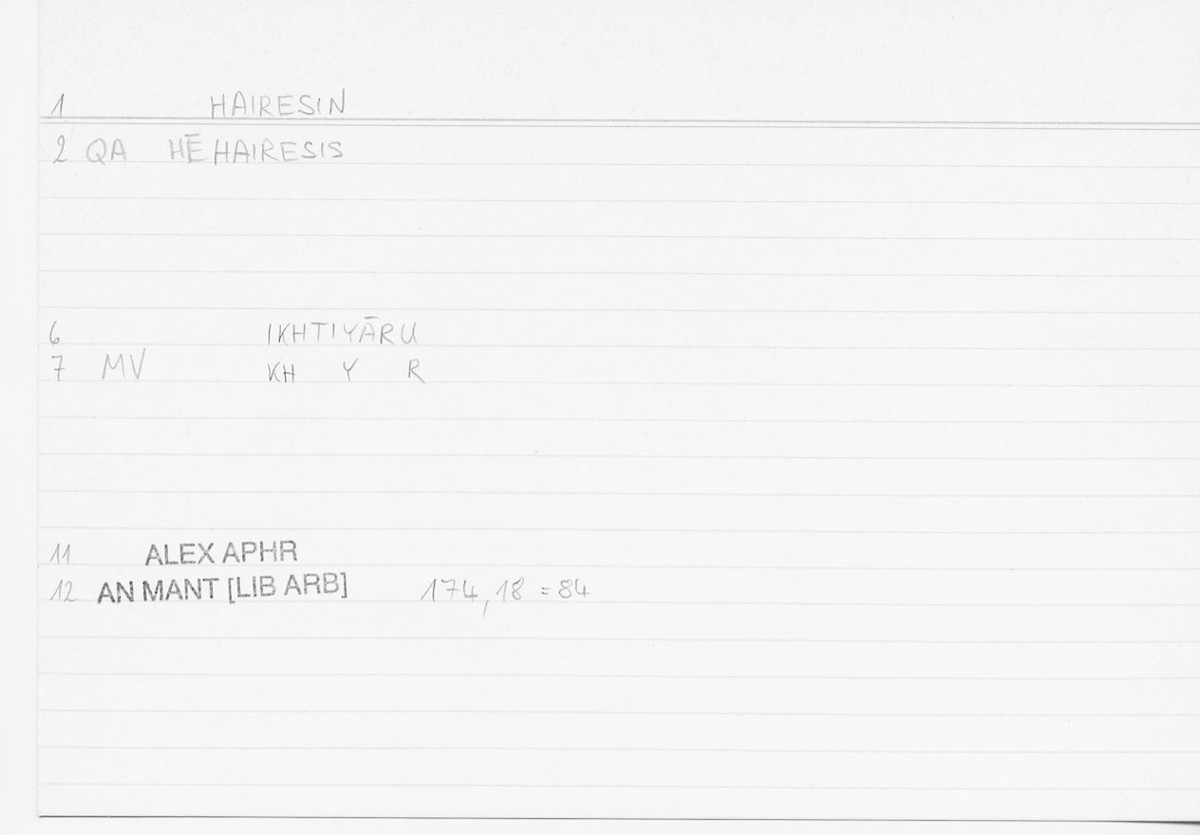 1 HAIRESIN
2 QA HĒ HAIRESIS
6 IKHTIYĀRU
7 MV KH Y R
11 ALEX APHR
12 AN MANT [LIB ARB] 174,18 = 84